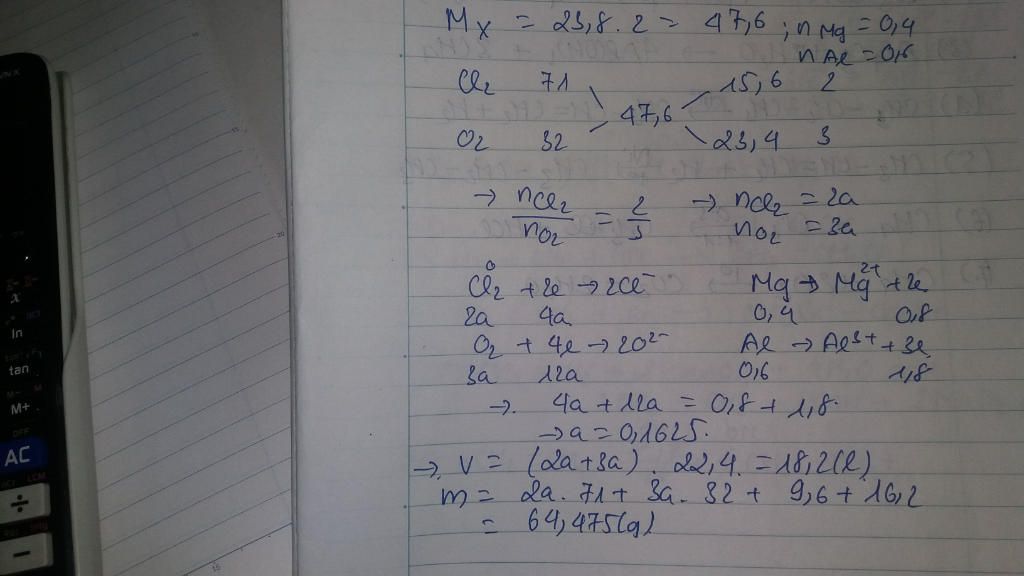 Mx = 23,8 . 2 = 47,6 ; nMg = 0,4
nAl = 0,6
Cl2 71 15,6 2
47,6
O2 32 23,4 3
→ nCl2 / nO2 = 2/3 → nCl2 = 2a
nO2 = 3a
Cl2⁰ + 2e → 2Cl⁻ Mg → Mg²⁺ + 2e
2a 4a 0,4 0,8
O2 + 4e → 2O²⁻ Al → Al³⁺ + 3e
3a 12a 0,6 1,8
→. 4a + 12a = 0,8 + 1,8.
→ a = 0,1625.
→ V = (2a+3a) . 22,4. = 18,2(l)
m = 2a. 71 + 3a. 32 + 9,6 + 16,2
= 64,475(g)
x
ln
tan
M+
AC
÷
−